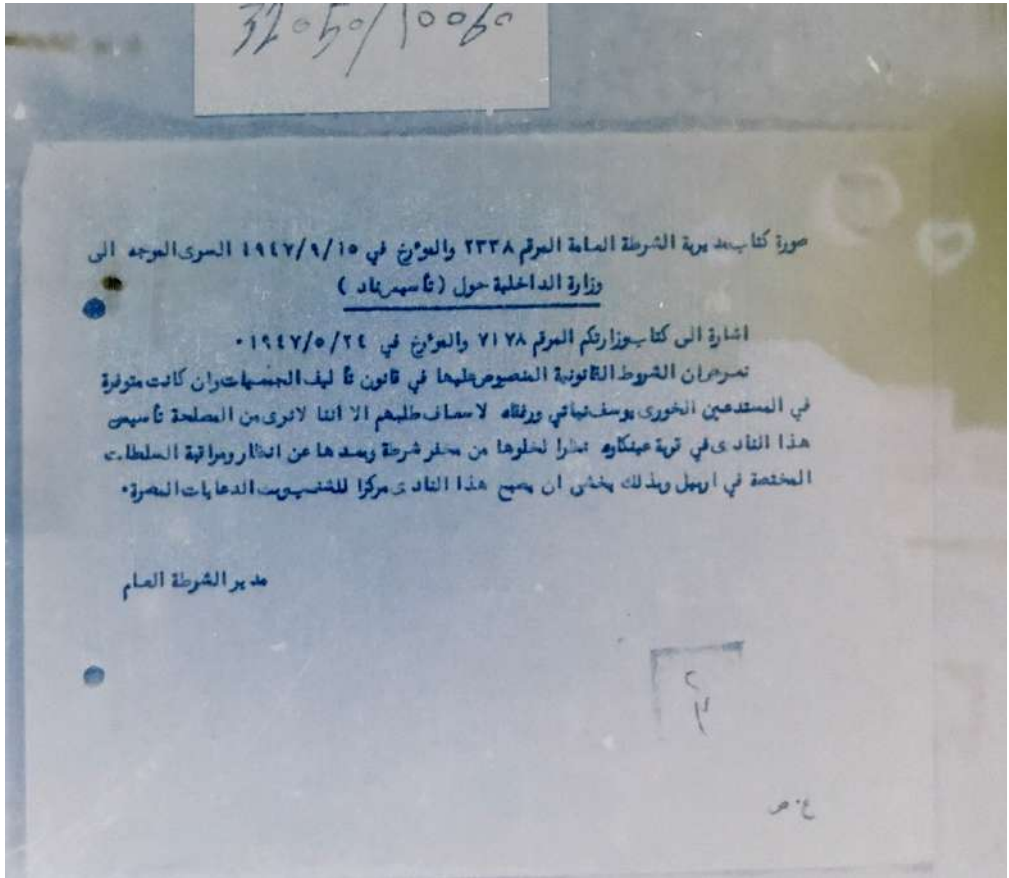 صورة كتاب مديرية الشرطة العامة المرقم ٢٣٣٨ والمؤرخ في ١٩٤٧/٩/١٥ السري الموجه الى
وزارة الداخلية حول (تأسيس ناد)
اشارة الى كتاب وزارتكم المرقم ٧١٧٨ والمؤرخ في ١٩٤٧/٥/٢٤ ٠
نعرض ان الشروط القانونية المنصوص عليها في قانون تأليف الجمعيات وان كانت متوفرة
في المستدعين الخوري يوسف ورفقاه لاسعاف طلبهم الا اننا لانرى من المصلحة تأسيس
هذا النادى في قرية عينكاوه نظرا لخلوها من مخفر شرطة وبعدها عن انظار ومراقبة السلطات
المختصة في اربيل وبذلك يخشى ان يصبح هذا النادى مركزا الدعايات المضرة٠
مدير الشرطة العام
٢
٤
ع٠ص